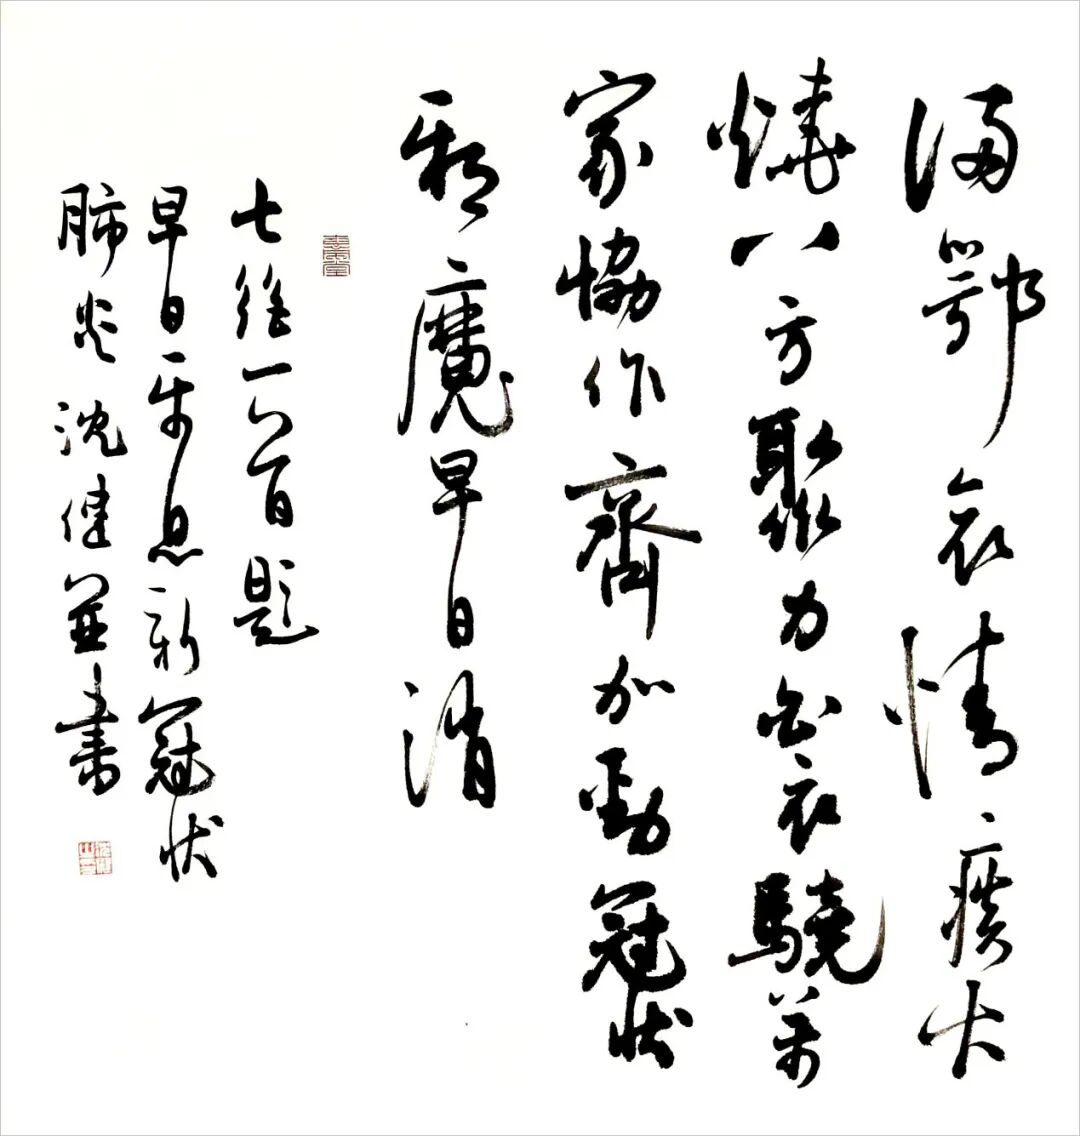 滿鄂哀情火
燒八方聚力白衣驍萬
家協作齊加勁冠狀
邪魔早日消
七絕一首題
早日平息新冠狀
肺炎沈健並書